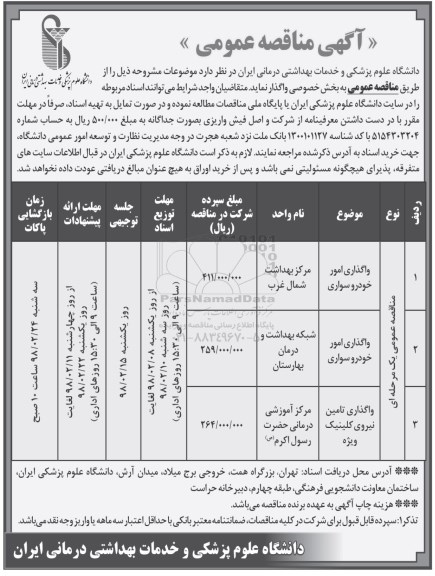 « آگهی مناقصه عمومی »
دانشگاه علوم پزشکی و خدمات بهداشتی درمانی ایران
دانشگاه علوم پزشکی و خدمات بهداشتی درمانی ایران در نظر دارد موضوعات مشروحه ذیل را از
طریق مناقصه عمومی به بخش خصوصی واگذار نماید. متقاضیان واجد شرایط می‌توانند اسناد مربوطه
را در سایت دانشگاه علوم پزشکی ایران یا پایگاه ملی مناقصات مطالعه نموده و در صورت تمایل به تهیه اسناد، صرفاً در مهلت
مقرر با در دست داشتن معرفینامه از شرکت و اصل فیش واریزی بصورت جداگانه به مبلغ ۵۰۰/۰۰۰ ریال به حساب شماره
۵۱۵۴۳۰۳۳۰۴ با کد شناسه ۱۳۰۰۱۰۱۱۲۷ بانک ملت نزد شعبه هجرت در وجه مدیریت نظارت و توسعه امور عمومی دانشگاه،
جهت خرید اسناد به آدرس ذکرشده مراجعه نمایند. لازم به ذکر است دانشگاه علوم پزشکی ایران در قبال اطلاعات سایت های
متفرقه، پذیرای هیچگونه مسئولیتی نمی باشد و پس از خرید اوراق به هیچ عنوان مبالغ دریافتی عودت داده نخواهد شد.
ردیف نوع موضوع نام واحد مبلغ سپرده شرکت در مناقصه (ریال) مهلت توزیع اسناد جلسه توجیهی مهلت ارائه پیشنهادات زمان بازگشایی پاکات
مناقصه عمومی یک مرحله ای
۱ واگذاری امور خودرو سواری مرکز بهداشت شمال غرب ۴۱۱/۰۰۰/۰۰۰
۲ واگذاری امور خودرو سواری شبکه بهداشت و درمان بهارستان ۲۵۹/۰۰۰/۰۰۰
۳ واگذاری تامین نیروی کلینیک ویژه مرکز آموزشی درمانی حضرت رسول اکرم (ص) ۲۶۴/۰۰۰/۰۰۰
از روز یکشنبه ۹۸/۰۲/۰۸ لغایت
روز سه شنبه ۹۸/۰۲/۱۰
(ساعت ۹ الی ۱۵:۳۰ روزهای اداری)
روز یکشنبه ۹۸/۰۲/۱۵
از روز چهارشنبه ۹۸/۰۲/۱۱ لغایت
روز یکشنبه ۹۸/۰۲/۲۲
(ساعت ۹ الی ۱۵:۳۰ روزهای اداری)
سه شنبه ۹۸/۰۲/۲۴ ساعت ۱۰ صبح
ParsNamadData
پایگاه اطلاع رسانی مناقصه
۰۲۱-۸۸۳۴۹۶۷۰-۵
*** آدرس محل دریافت اسناد: تهران، بزرگراه همت، خروجی برج میلاد، میدان آرش، دانشگاه علوم پزشکی ایران،
ساختمان معاونت دانشجویی فرهنگی، طبقه چهارم، دبیرخانه حراست
*** هزینه چاپ آگهی به عهده برنده مناقصه می‌باشد.
تذکر۱: سپرده قابل قبول برای شرکت در کلیه مناقصات، ضمانتنامه معتبر بانکی با حداقل اعتبار سه ماهه یا واریز وجه نقد می‌باشد.
دانشگاه علوم پزشکی و خدمات بهداشتی درمانی ایران